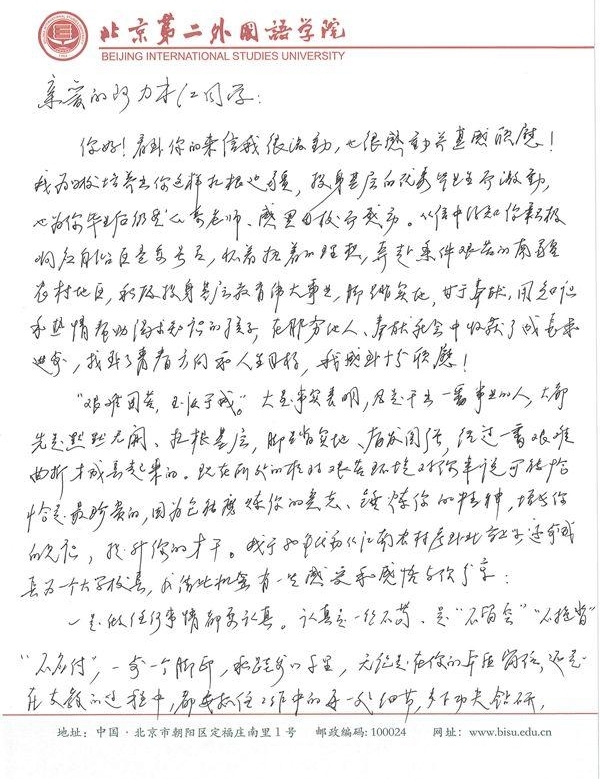 北京第二外国语学院
BEIJING INTERNATIONAL STUDIES UNIVERSITY
亲爱的阿力木江同学：
你好！看到你的来信我很激动，也很感动并甚感欣慰！
我为母校培养出你这样扎根边疆，投身基层的优秀毕业生而激动，
也为你毕业后仍是心系老师、感恩母校而感动。从信中得知你积极
响应自治区党委号召，怀着执着的理想，奔赴条件艰苦的南疆
农村地区，积极投身基层教育伟大事业，脚踏实地，甘于奉献，用知识
和热情帮助渴求知识的孩子，在服务他人、奉献社会中收获了成长和
进步，找到了青春方向和人生目标，我感到十分欣慰！
"艰难困苦，玉汝于成。"大量事实表明，凡是干出一番事业的人，大都
先是默默无闻、扎根基层，脚踏实地、奋发图强，经过一番艰难
曲折才成长起来的。现在所处的相对艰苦环境对你来说可能恰
恰是最珍贵的，因为它能磨炼你的意志、锤炼你的精神，增长你
的见识，提升你的才干。我
长为一个大学校长，我借此机会有一些感受和感悟与你分享：
一是做任何事情都要认真。认真是一丝不苟、是"不留会""不推脱"
"不应付"，一步一个脚印，积跬步以千里，无论是在你的平凡岗位，还是
在支教的过程中，都要抓住工作中的每一处细节，多下功夫钻研，
地址：中国·北京市朝阳区定福庄南里1号 邮政编码:100024 网址：www.bisu.edu.cn